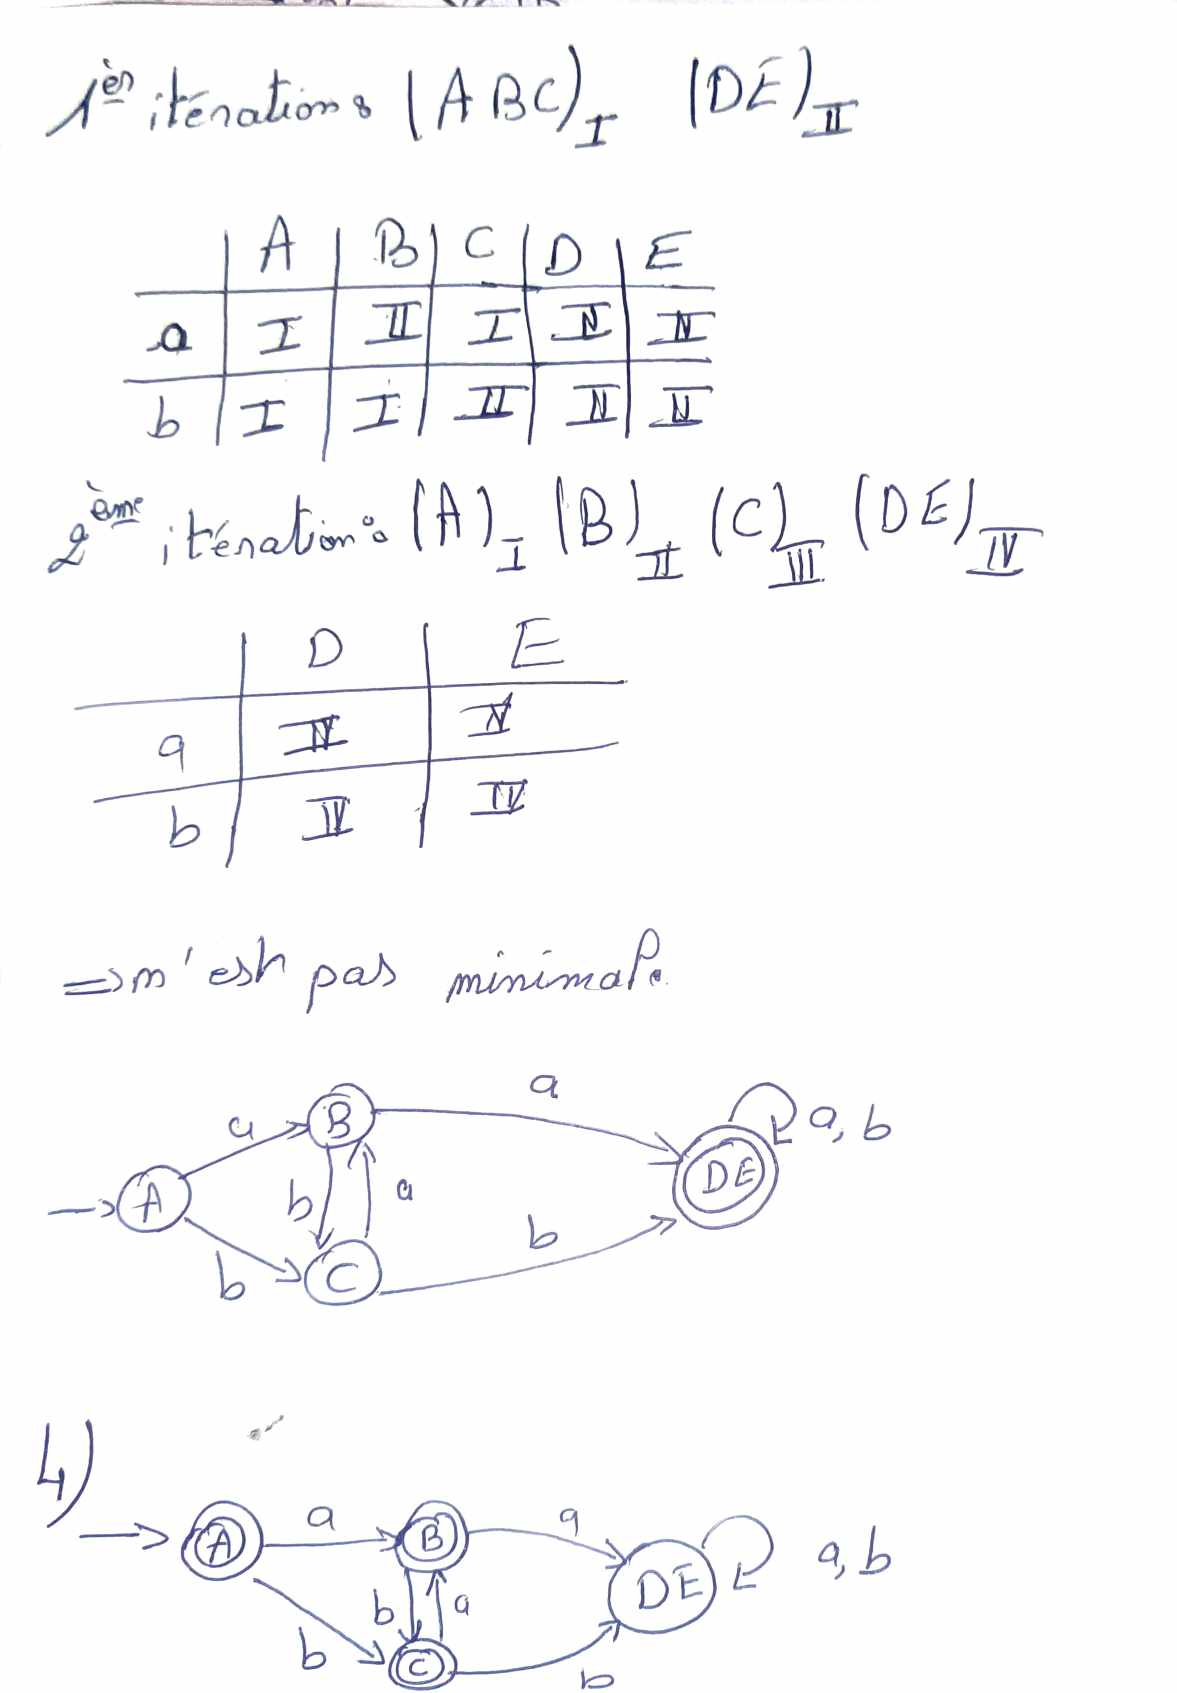 1èr itération : (ABC)I (DE)II
A B C D E
a I II I II II
b I I II II II
2ème itération : (A)I (B)II (C)III (DE)IV
D E
a IV IV
b IV IV
=> n'est pas minimal.
a
a B a, b
A b a DE
b C b
4)
a a
A B DE a, b
b a
b C b